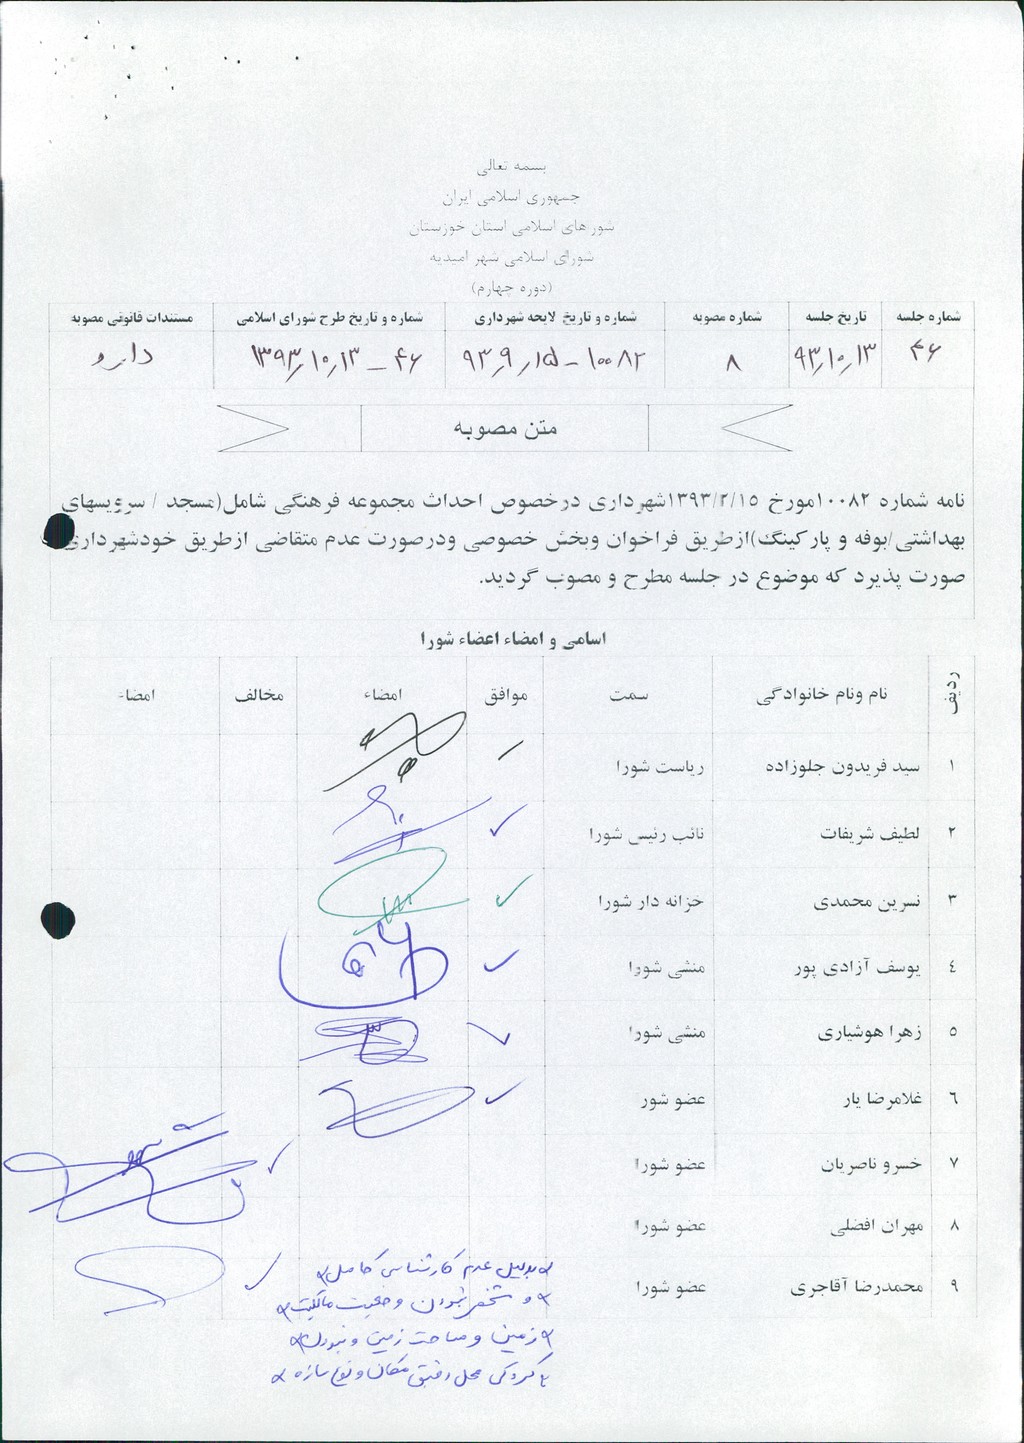 بسمه تعالی
جمهوری اسلامی ایران
شور های اسلامی استان خوزستان
شورای اسلامی شهر امیدیه
(دوره چهارم)
شماره جلسه تاریخ جلسه شماره مصوبه شماره و تاریخ لایحه شهرداری شماره و تاریخ طرح شورای اسلامی مستندات قانونی مصوبه
۴۶ ۹۳/۱۰/۱۳ ۸ ۱۰۰۸۲ - ۹۳/۹/۱۵ ۴۶ - ۱۳۹۳/۱۰/۱۳ دارد
متن مصوبه
نامه شماره ۱۰۰۸۲مورخ ۱۳۹۳/۲/۱۵شهرداری درخصوص احداث مجموعه فرهنگی شامل(مسجد / سرویسهای
بهداشتی/بوفه و پارکینگ)ازطریق فراخوان وبخش خصوصی ودرصورت عدم متقاضی ازطریق خودشهرداری
صورت پذیرد که موضوع در جلسه مطرح و مصوب گردید.
اسامی و امضاء اعضاء شورا
ردیف نام ونام خانوادگی سمت موافق امضاء مخالف امضاء
۱ سید فریدون جلوزاده ریاست شورا
۲ لطیف شریفات نائب رئیس شورا
۳ نسرین محمدی خزانه دار شورا
۴ یوسف آزادی پور منشی شورا
۵ زهرا هوشیاری منشی شورا
۶ غلامرضا یار عضو شور
۷ خسرو ناصریان عضو شورا
۸ مهران افضلی عضو شورا
۹ محمدرضا آقاجری عضو شورا
بدلیل عدم کارشناسی کامل
و مشخص نبودن وضعیت مالکیت
زمین و مساحت زمین و نبودن
کروکی محل دقیق مکان و نوع سازه